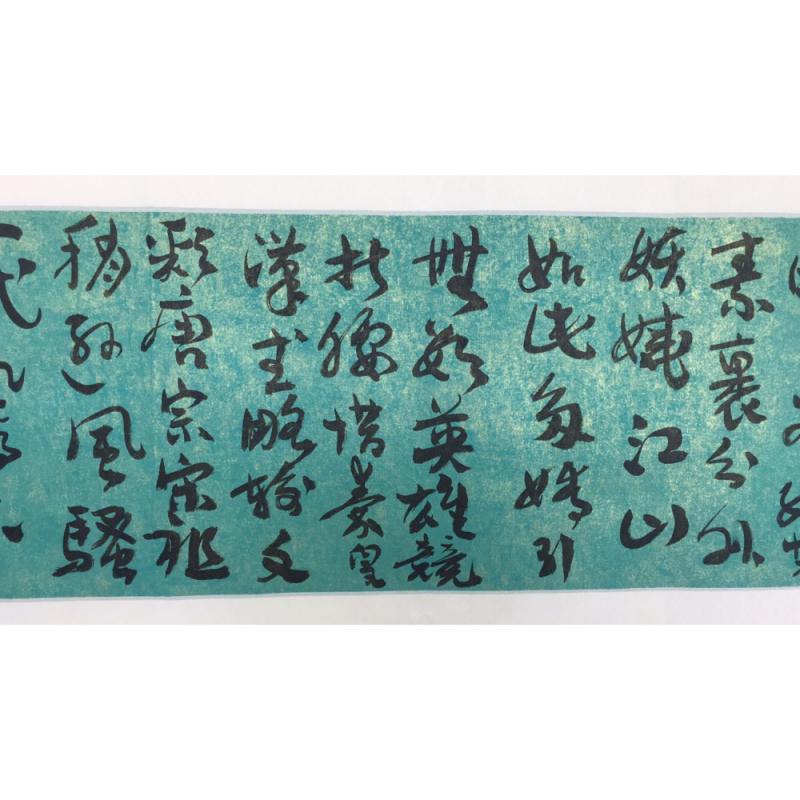 素裹分外
妖娆江山
如此多嬌引
無數英雄競
折腰惜秦皇
漢武略輸文
彩唐宗宋祖
稍遜風騷